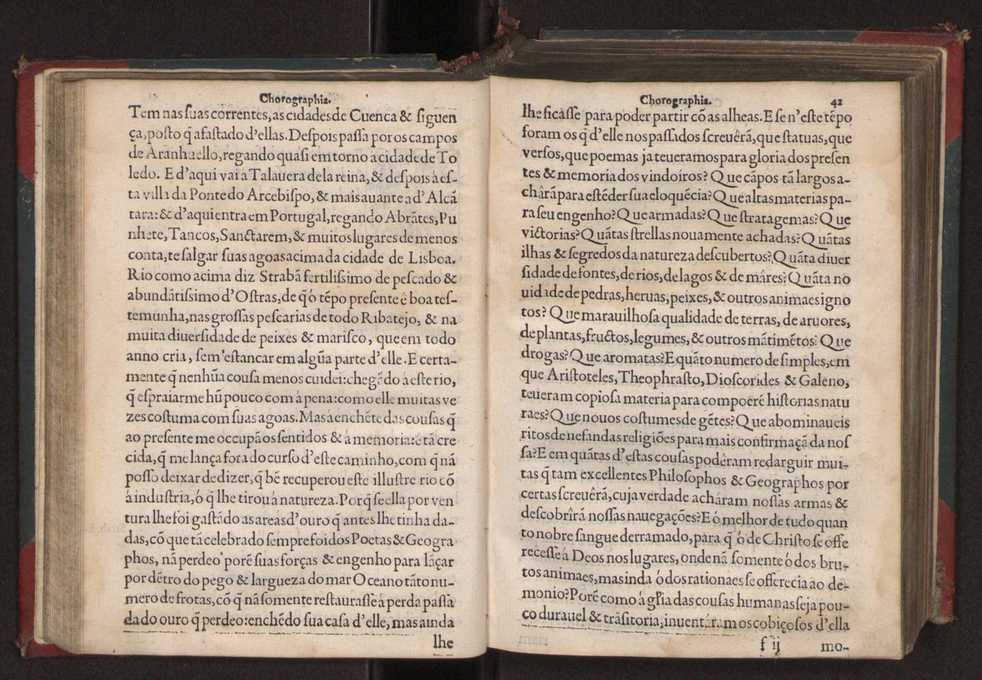 Chorographia.
Tem nas suas correntes, as cidades de Cuenca & siguen
ça, posto q̃ afastado d'ellas. Despois passa por os campos
de Aranhuello, regando quasi em torno a cidade de To
ledo. E d'aqui vai a Talauera de la reina, & despois à es-
ta villa da Ponte do Arcebispo, & mais auante a d'Alcã
tara: & d'aqui entra em Portugal, regando Abrãtes, Pu
nhete, Tancos, Sanctarem, & muitos lugares de menos
conta, te salgar suas agoas acima da cidade de Lisboa.
Rio como acima diz Strabã fertilissimo de pescado &
abundãtissimo d'Ostras, de q̃ ó tẽpo presente é boa tes-
temunha, nas grossas pescarias de todo Ribatejo, & na
muita diuersidade de peixes & marisco, que em todo
anno cria, sem 'estancar em algũa parte d'elle. E certa-
mente q̃ nenhũa cousa menos cuidei: chegãdo à este rio,
q̃ espraiarme hũ pouco com à pena: como elle muitas ve
zes costuma com suas agoas. Mas à enchẽte das cousas q̃
ao presente me occupã os sentidos & à memoria: é tã cre
cida, q̃ me lança fora do curso d'este caminho, com q̃ nã
posso deixar de dizer, q̃ bẽ recuperou este illustre rio cõ
à industria, ó q̃ lhe tirou à natureza. Porq̃ se ella por ven
tura lhe foi gastãdo as areas d'ouro q̃ antes lhe tinha da-
das, cõ que tã celebrado sempre foi dos Poetas & Geogra
phos, nã perdeo porẽ suas forças & engenho para lãçar
por dẽtro do pego & largueza do mar Oceano tãto nu-
mero de frotas, cõ q̃ nã somente restaurasse à perda passa
da do ouro q̃ perdeo: enchẽdo sua casa d'elle, mas ainda
lhe
Chorographia. 42
lhe ficasse para poder partir cõ as alheas. E se n'este tẽpo
foram os q̃ d'elle nos passados screuẽrã, que statuas, que
versos, que poemas ja teueramos para gloria dos presen
tes & memoria dos vindoiros? Que cãpos tã largos a-
charã para estẽder sua eloquẽcia? Que altas materias pa-
ra seu engenho? Que armadas? Que stratagemas? Que
victorias? Quãtas strellas nouamente achadas? Quãtas
ilhas & segredos da natureza descubertos? Quãta diuer
sidade de fontes, de rios, de lagos & de mãres? Quãta no
uidade de pedras, heruas, peixes, & outros animaes igno
tos? Que marauilhosa qualidade de terras, de aruores,
de plantas, fructos, legumes, & outros mãtimẽtos? Que
drogas? Que aromatas? E quãto numero de simples, em
que Aristoteles, Theophrasto, Dioscorides & Galeno,
teueram copiosa materia para compoerẽ historias natu
raes? Que nouos costumes de gẽtes? Que abominaueis
ritos de nefandas religiões para mais confirmaçã da nos
sa? E em quãtas d'estas cousas poderam redarguir mui-
tas q̃ tam excellentes Philosophos & Geographos por
certas screuẽrã, cuja verdade acháram nossas armas &
descobrirã nossas nauegações? E ó melhor de tudo quan
to nobre sangue derramado, para q̃ ó de Christo se offe
recesse à Deos nos lugares, onde nã somente ó dos bru-
tos animaes, mas inda ó dos rationaes se offerecia ao de-
monio? Porẽ como à glria das cousas humanas seja pou-
co durauel & trãsitoria, inuentáram os cobiçosos d'ella
f ij mo-